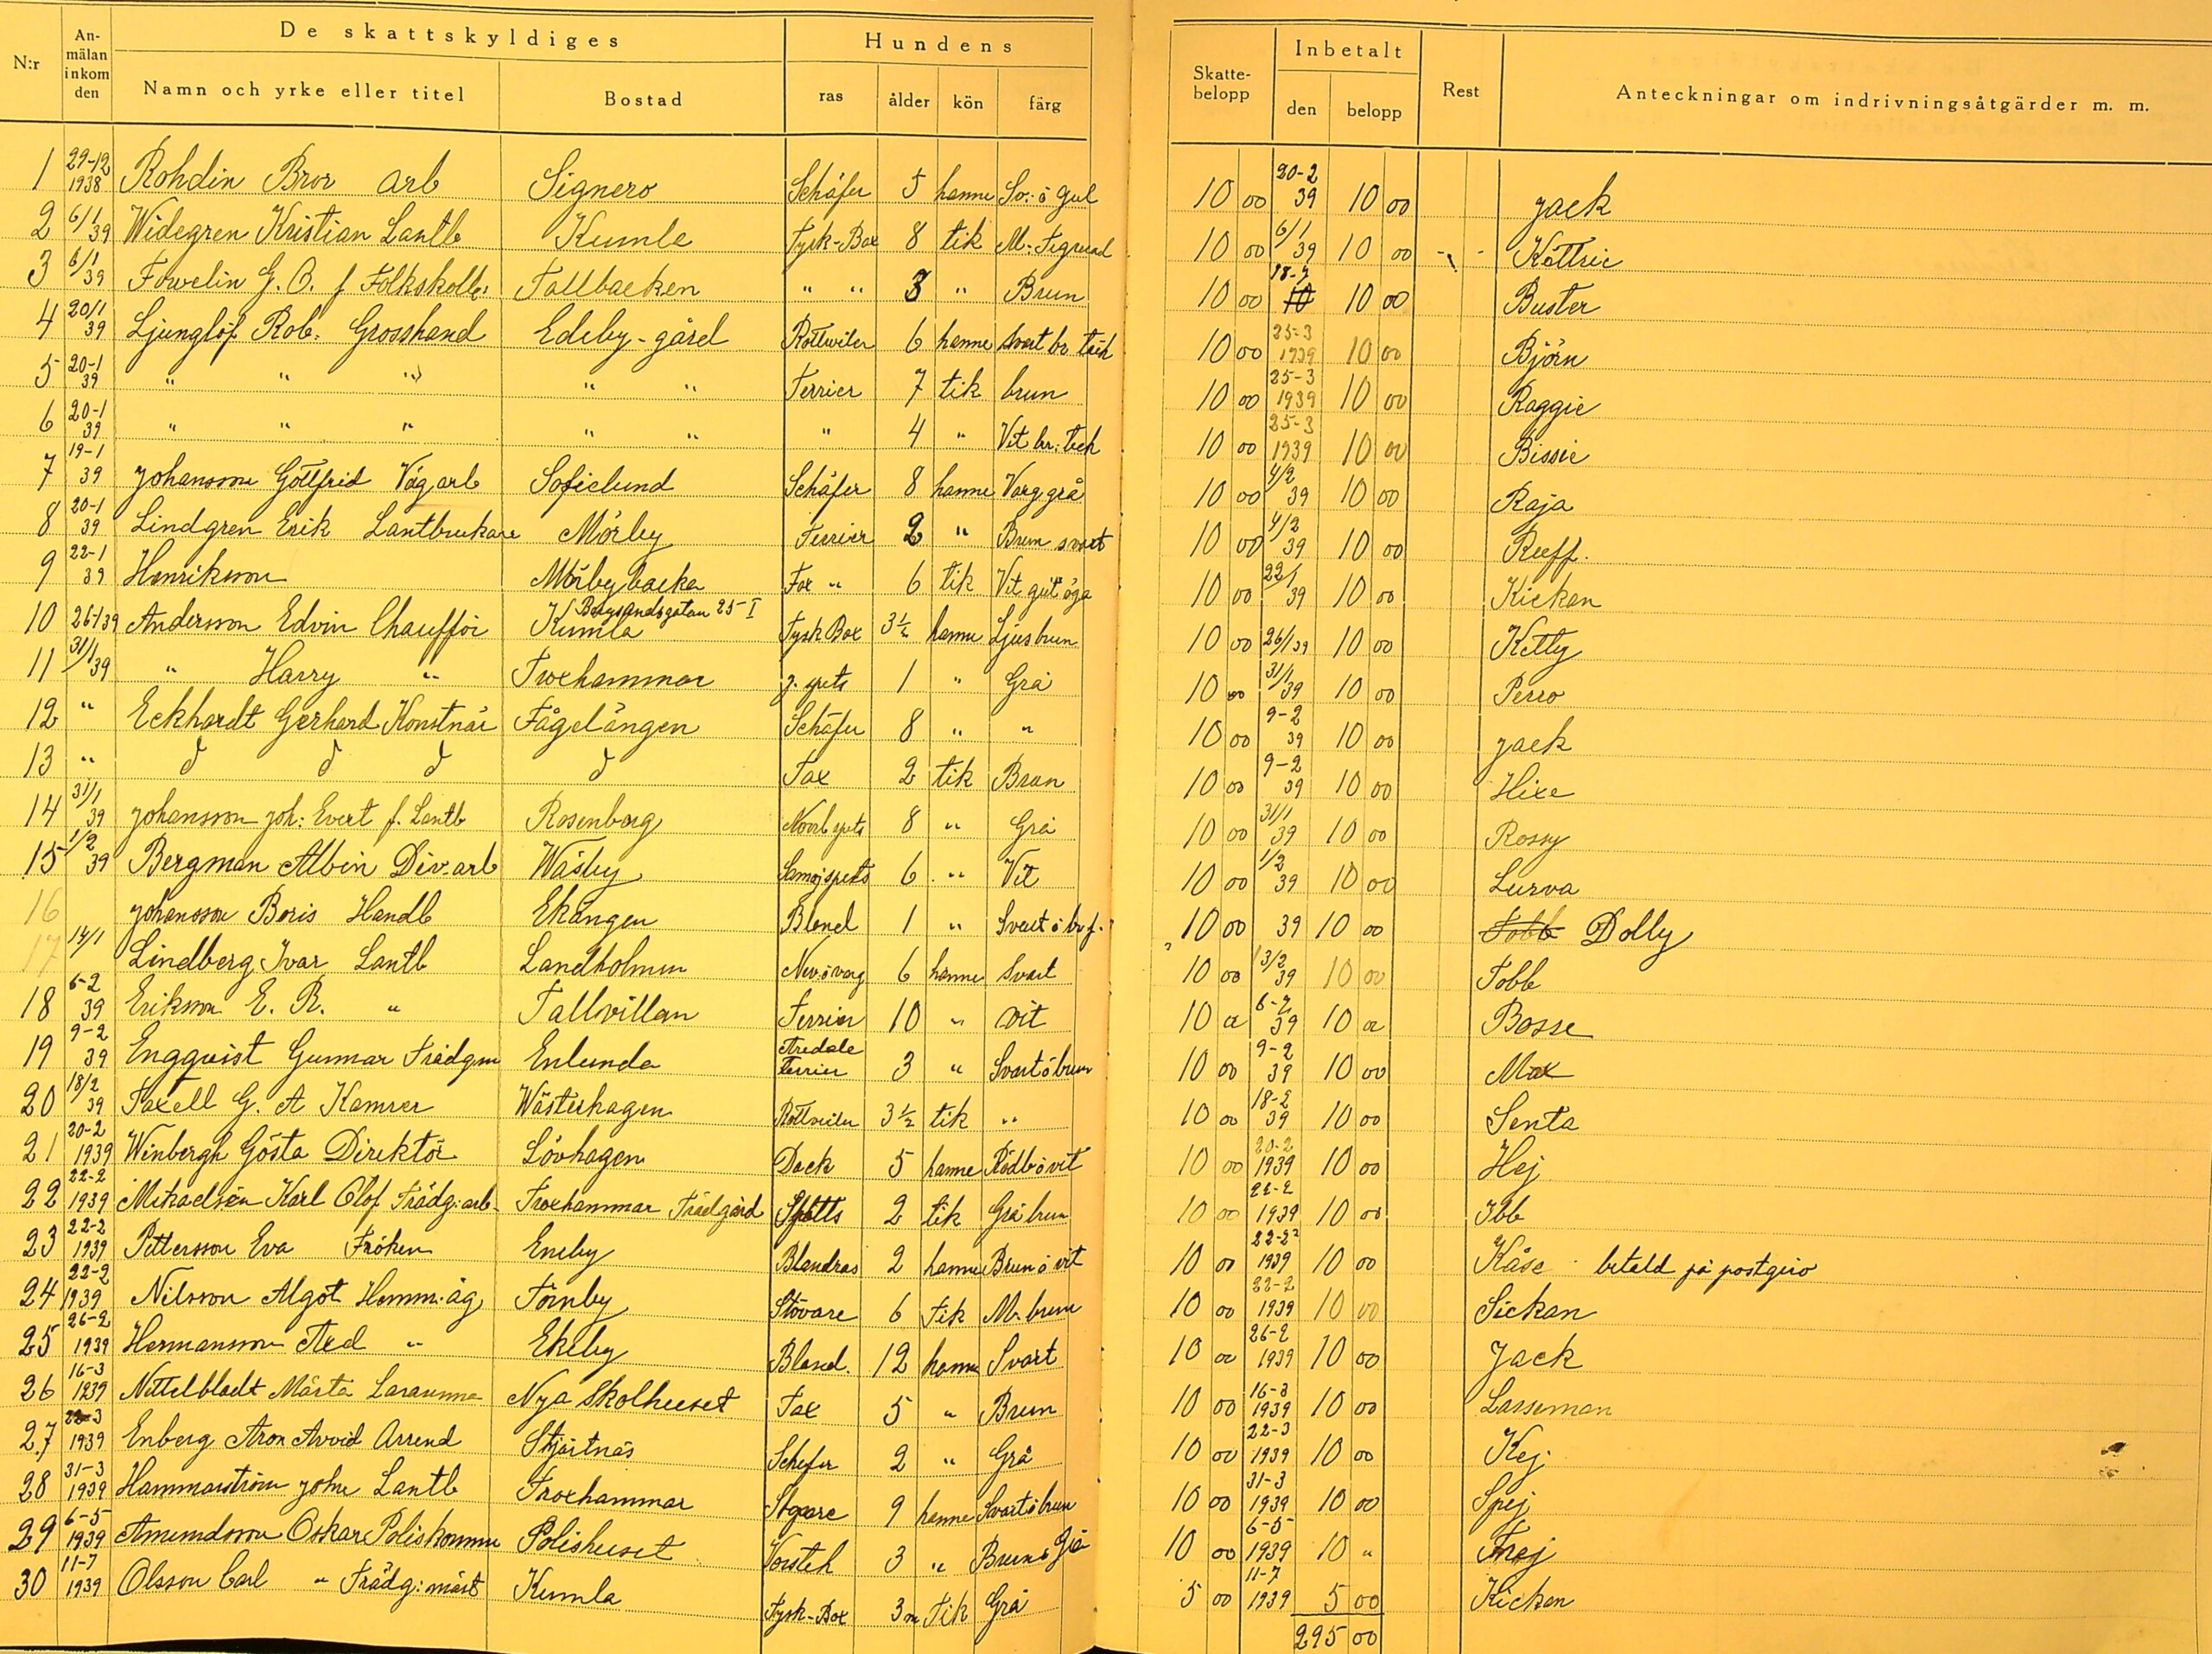 De skattskyldiges Hundens Inbetalt
N:r Anmälan inkom den Namn och yrke eller titel Bostad ras ålder kön färg Skattebelopp den belopp Rest Anteckningar om indrivningsåtgärder m. m.
1 29-12 1938 Rohdin Bror arb Signero Schäfer 5 hanne Sv: ö gul 10 00 20-2 39 10 00 Jack
2 6/1 39 Widegren Kristian Lantb Kumla Tysk-Box 8 tik M: Tigrerad 10 00 6/1 39 10 00 - -
3 6/1 39 G. O. f Folkskoll: Tallbacken " " 3 " Brun 10 00 18-7 10 10 00 Buster
4 20/1 39 Ljunglöf Rob: Grosshand Edeby-gård Rottweiler 6 hanne svart br tech 10 00 25-3 1939 10 00 Björn
5 20-1 39 " " " " " Terrier 7 tik brun 10 00 25-3 1939 10 00 Raggie
6 20-1 39 " " " " " " 4 " Vit br: tech 10 00 25-3 1939 10 00 Bissie
7 19-1 39 Johansson Gottfrid Väg arb Sofielund Schäfer 8 hanne Varggrå 10 00 4/2 39 10 00 Raja
8 20-1 39 Lindgren Erik Lantbrukare Mörby Terrier 2 " Brun svart 10 00 4/2 39 10 00 Reeff.
9 22-1 39 Henriksson Mörby backa Fox " 6 tik Vit gul öga 10 00 22/1 39 10 00 Kickan
10 26-1 39 Andersson Edvin Chaufför Kumla Bergsundsgatan 25 I Tysk Box 3½ hanne Ljusbrun 10 00 26/1 39 10 00 Ketty
11 31/1 39 " Harry " Troxhammar g. spets 1 " Grå 10 00 31/1 39 10 00 Perro
12 " Eckhardt Gerhard Konstnär Fågelängen Schäfer 8 " " 10 00 9-2 39 10 00 Jack
13 " d d d d Tax 2 tik Brun 10 00 9-2 39 10 00 Hixe
14 31/1 39 Johansson Joh: Evert f. Lantb Rosenborg Norrl spets 8 " Grå 10 00 31/1 39 10 00 Rossy
15 1/2 39 Bergman Albin Div. arb Wäsby Samojspets 6 " Vit 10 00 1/2 39 10 00 Lurva
16 Johansson Boris Handl Ekängen Bland 1 " Svart ö br f. 10 00 39 10 00 Tobb Dolly
17 14/1 Lindberg Ivar Lantb Landholmen 6 hanne Svart 10 00 13/2 39 10 00 Tobb
18 6-2 39 Eriksson E. R. " Tallvillan Terrier 10 " vit 10 00 6-2 39 10 00 Bosse
19 9-2 39 Engqvist Gunnar Trädgm Enlunda Airedale Terrier 3 " Svart ö brun 10 00 9-2 39 10 00 Max
20 18/2 39 Taxell G. A Kamrer Wästerhagen Rottveiler 3½ tik " 10 00 18-2 39 10 00 Senta
21 20-2 1939 Winbergh Gösta Direktör Lövhagen Dack 5 hanne Rödbr ö vit 10 00 20-2 1939 10 00 Hej
22 22-2 1939 Mikaelsén Karl Olof Trädg: arb- Troxhammar Trädgård Spitts 2 tik Gråbrun 10 00 22-2 1939 10 00 Ibb
23 22-2 1939 Pettersson Eva Fröken Eneby Blandras 2 hanne Brun ö vit 10 00 22-2 1939 10 00 Kåse betald på postgiro
24 22-2 1939 Nilsson Algot Hemm. äg Törnby Stövare 6 Tik M. brun 10 00 22-2 1939 10 00 Sickan
25 26-2 1939 Hermansson Axel " Ekeby Bland. 12 hanne Svart 10 00 26-2 1939 10 00 Jack
26 16-3 1939 Nettelbladt Märta Lärarinna Nya Skolhuset Tax 5 " Brun 10 00 16-3 1939 10 00 Lasseman
27 22-3 1939 Enberg Aron Arvid Arrend Stjärtnäs Schefer 2 " Grå 10 00 22-3 1939 10 00 Kej
28 31-3 1939 Hammarström John Lantb Troxhammar Stövare 9 hanne Svart ö brun 10 00 31-3 1939 10 00 Spej
29 6-5 1939 Amundsson Oskar Poliskomm Polishuset Vorsteh 3 " Brun ö Grå 10 00 6-5 1939 10 " Frej
30 11-7 1939 Olsson Carl " Trädg: mäst Kumla Tysk-Box 3 m Tik Grå 5 00 11-7 1939 5 00 Kickan
295 00